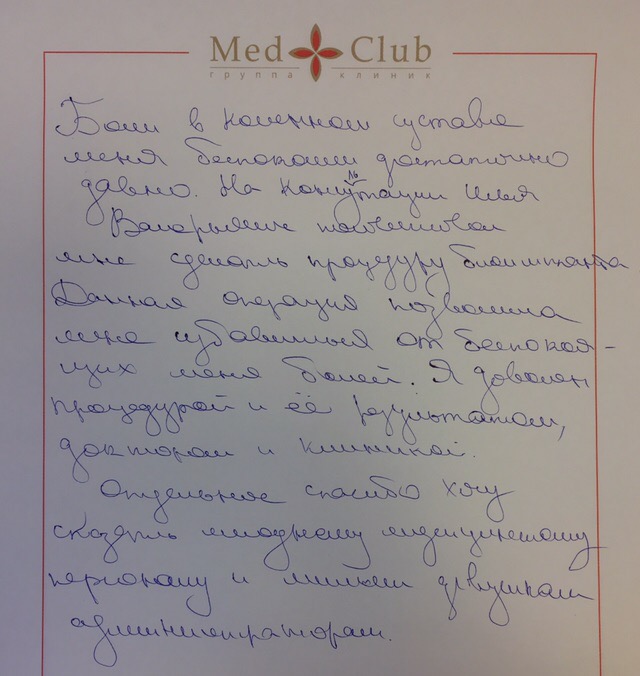 Med Club
группа клиник
Боли в коленном суставе
меня беспокоили достаточно
давно. На консультации Илья
Валерьевич посоветовал
мне сделать процедуру биоимпланта
Данная операция позволила
мне избавиться от беспокоя-
щих меня болей. Я доволен
процедурой и её результатом,
доктором и клиникой.
Отдельное спасибо хочу
сказать младшему медицинскому
персоналу и милым девушкам
администраторам.